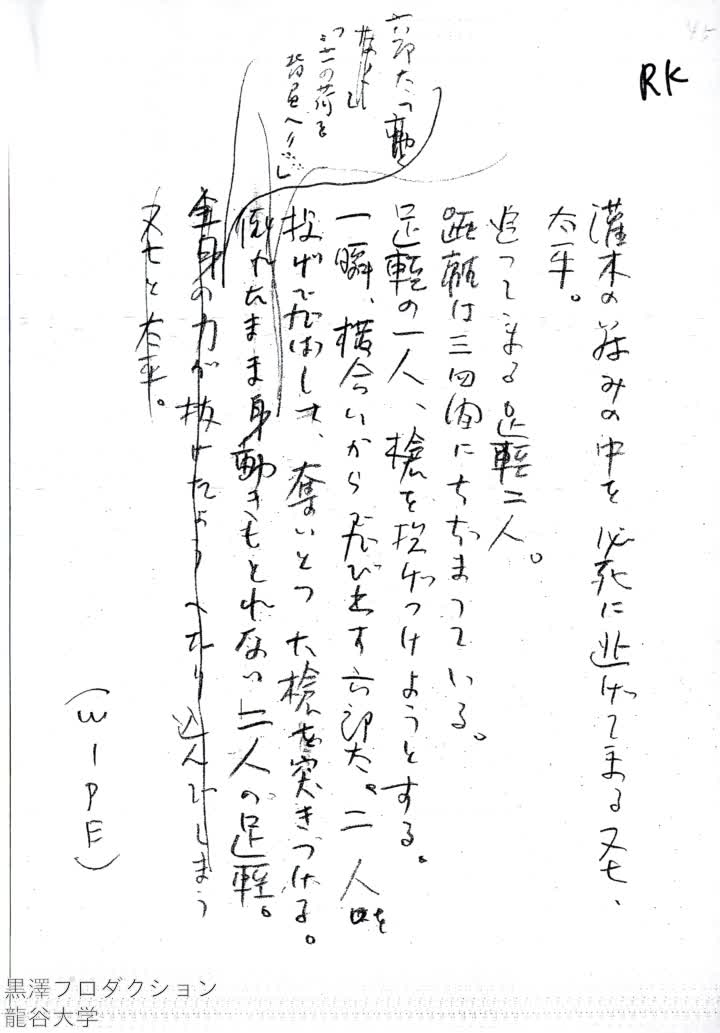 RK
灌木の茂みの中を必死に逃げて来る又七、
太平。
追って来る足軽二人。
距離は三四間にちぢまっている。
足軽の一人、槍を投げつけようとする。
一瞬、横合いから飛び出す六郎太。二人を
投げ飛ばし、奪いとった槍を突きつける。
倒れたまま身動きもとれない二人の足軽。
全身の力が抜けたようへたり込んでしまう
又七と太平。
(WIPE)
六郎太
の荷を
黒澤プロダクション
龍谷大学